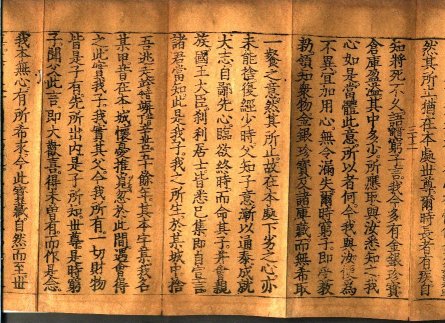 然其所止猶在本處世尊爾時長者有疾自
知將死不久語窮子言我今多有金銀珍寶
倉庫盈溢其中多少所應取與汝悉知之我
心如是當體此意所以者何今我與汝便為
不異宜加用心無令漏失爾時窮子即受教
勑領知衆物金銀珍寶及諸庫藏而無希取
一飡之意然其所止故在本處下劣之心亦
未能捨復經少時父知子意漸以通泰成就
大志自鄙先心臨欲終時而命其子并會親
族國王大臣刹利居士皆悉已集即自宣言
諸君當知此是我子我之所生於某城中捨
吾逃走辛苦五十餘年其本字某我名
某甲昔在本城懷憂推覓忽於此間遇會得
之此實我子我實其父今我所有一切財物
皆是子有先所出内是子所知世尊是時窮
子聞父此言即大歡喜得未曾有而作是念
我本無心有所希求今此寶藏自然而至世